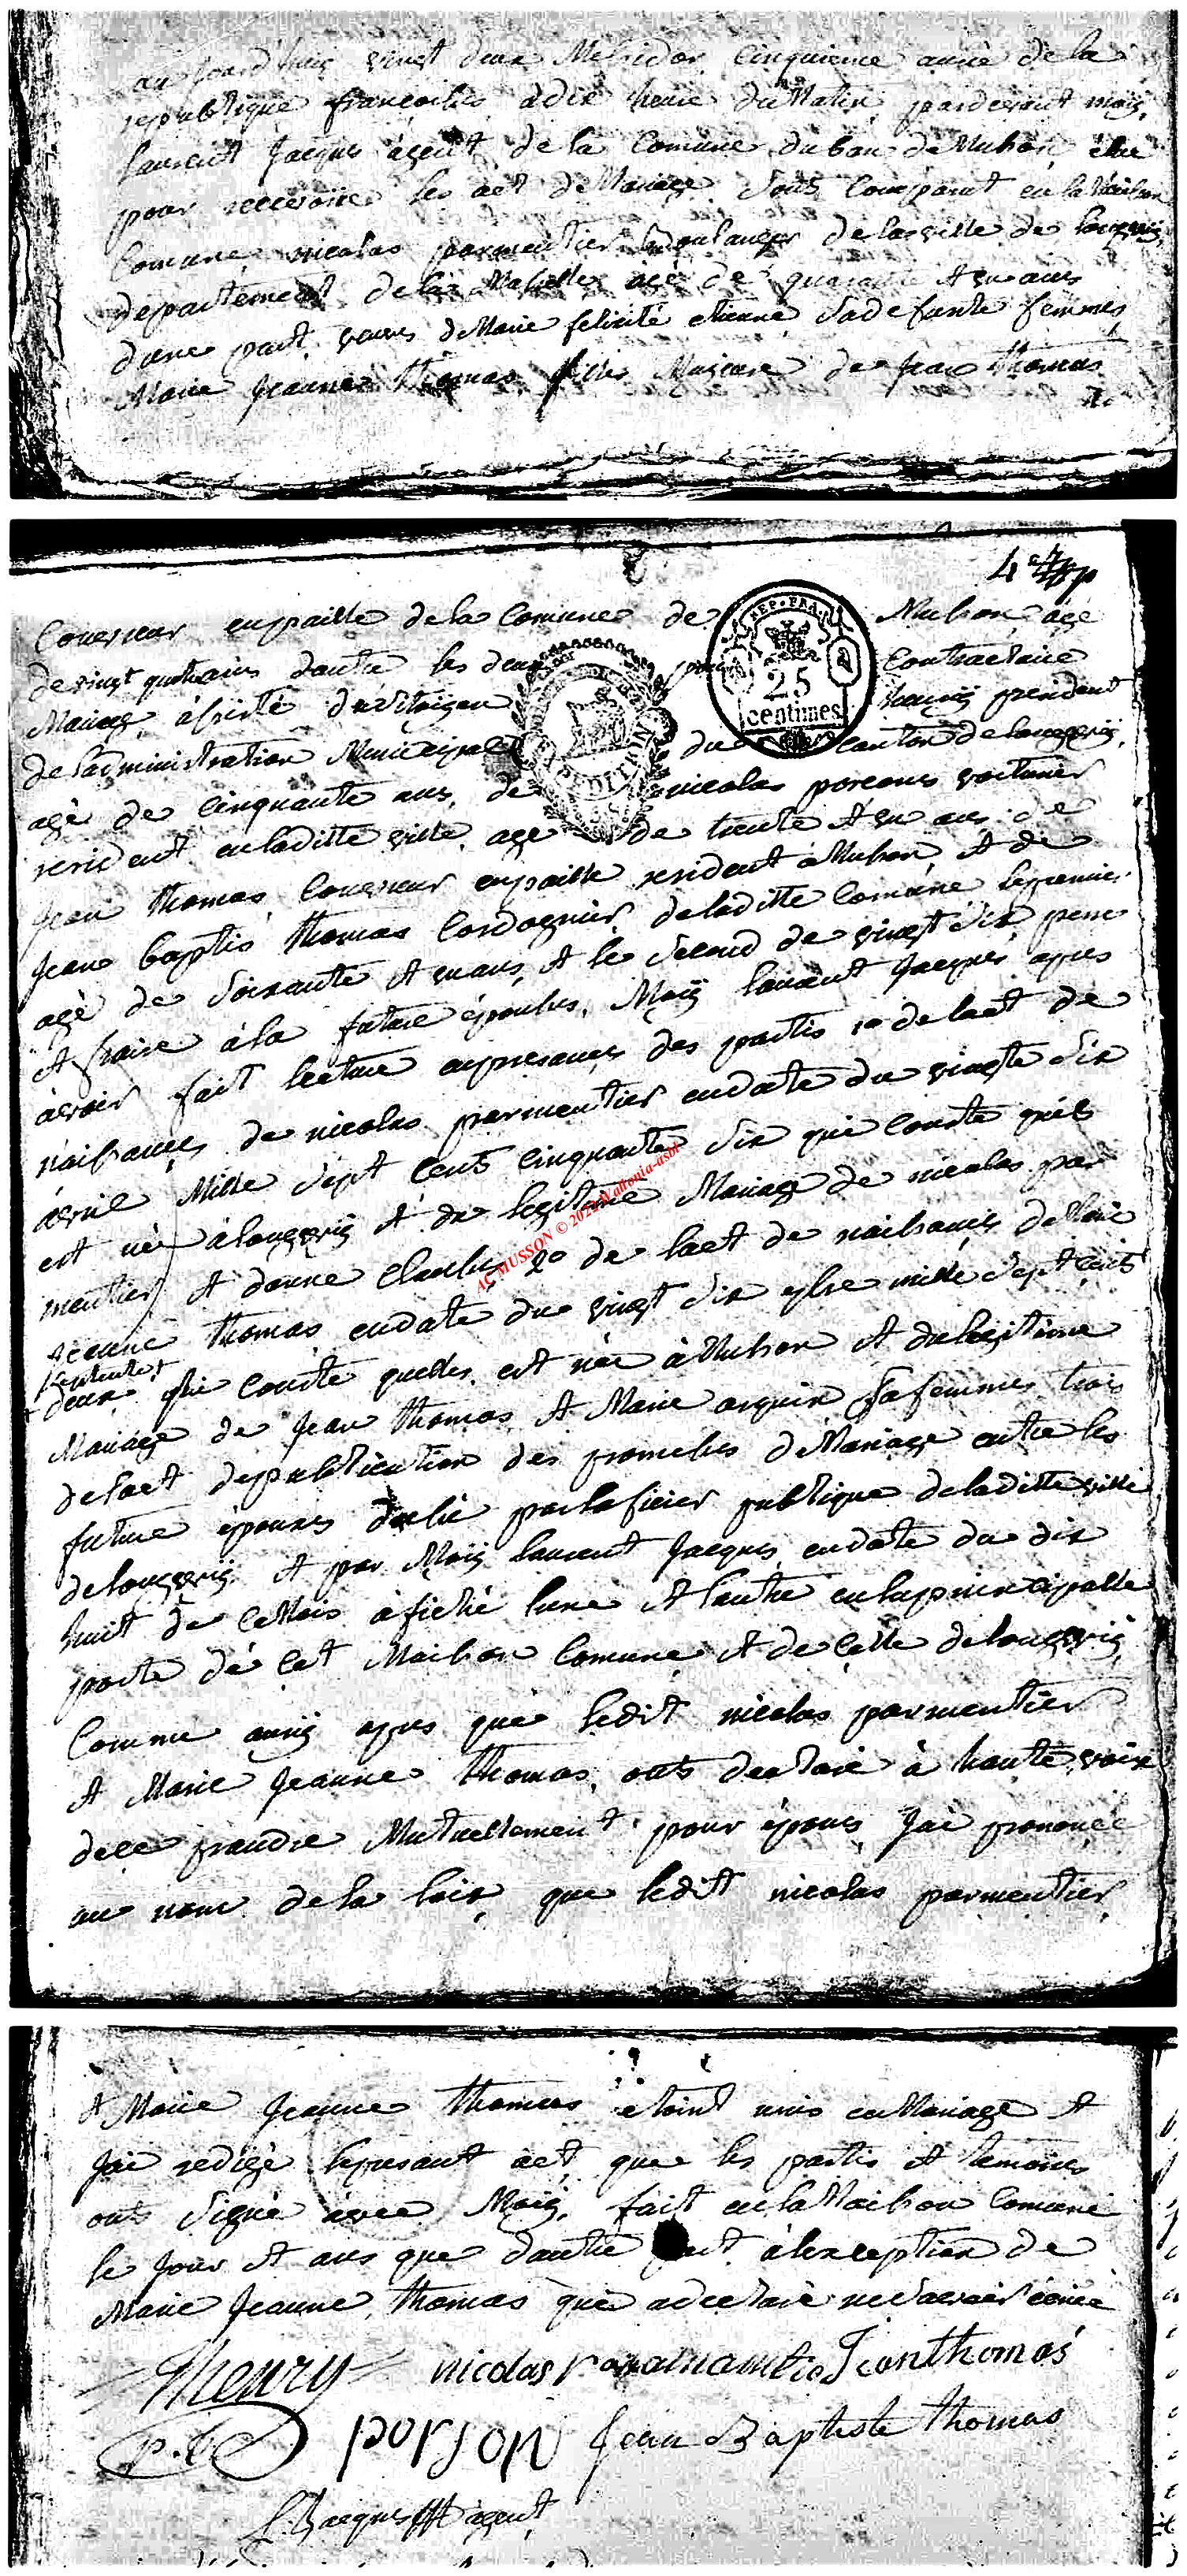 au jourd'huis vingt deux Mesidor cinquieme année de la
republique françoises à dix heure du Matin pardevant moiÿ
laurent Jacques agent de la Comune du ban de Mubson élue
pour recevoire les act de Mariage sont Comparut en la Maison
Comune nicolas parmentier boulanger de la ville de longwiÿ
departement de la Moselle agé de quarante et un ans
dune part veuve de Marie felicité etienne sa defunte femmes
Marie Jeanne thomas filles Majeure de Jean thomas
4
Couvreur en paille de la Comune de Mubson agé
de vingt quatre ans dautre les deux pour Contractaire
Mariage assisté du Citoÿen henrÿ president
de ladministration Municipale du Canton de longwiÿ
agé de cinquante ans, de nicolas porcons voiturier
resident en laditte ville agé de trente et un ans de
Jean thomas Couvreur en paille resident à Mubson et de
Jean baptis thomas Cordognier de laditte Comune le premier
agé de soixante et un ans et le second de vingt six pere
et fraire à la future épouses, Moiÿ laurent Jacques apres
avoir fait lecture en presances des partis 1o de lact de
naissances de nicolas parmentier en date du vingte six
avril Mille sept cents cinquante six qui Conste quil
est né à longwiÿ et du legitime Mariage de nicolas par
mentier et danne 2o de lact de naissances de Marie
Jeanne thomas en date du vingt six 9bre mille sept cents
septente
deux qui Conste quelles est née à Mubson et du legitime
Mariage de Jean thomas et Marie arquin sa femmes trois
de lact de publication des promesses de Mariage entre les
future épouxs par lafficier publique de laditte ville
de longwiÿ et par Moiÿ laurent Jacques en date du dix
huit de ce Mois affiché lune et lautre en la principalle
porte de cet Maison Comune et de celle de longwiÿ,
Comme ausÿ apres que ledit nicolas parmentier
et Marie Jeanne thomas, onts declaré à haute voixe
de ce prandre Mutuellement pour épous Jai prononcé
au nom de la loix que ledit nicolas parmentier
AC MUSSON © 2022 Wallonia-asbl
et Marie Jeanne thomas etoint unis en Mariage et
Jai redigé le presant act que les partis et temoins
onts signé avec Moiÿ, fait en la Maison Comune
le Jour et ans que dautre part à lexception de
Marie Jeanne thomas qui a declaré ne savoir écrire
Henry nicolas Jean thomas
porson Jean Baptiste thomas
Jacques agent